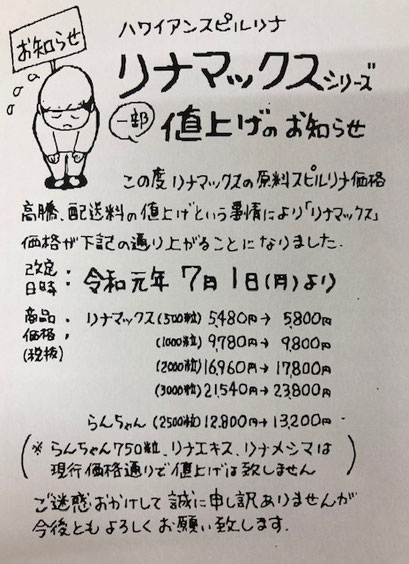 お知らせ
ハワイアンスピルリナ
リナマックスシリーズ
一部 値上げのお知らせ
この度リナマックスの原料スピルリナ価格
高騰、配送料の値上げという事情により「リナマックス」
価格が下記の通り上がることになりました.
改定日時: 令和元年 7月1日(月)より
商品・価格・(税抜) リナマックス(500粒) 5,480円→ 5,800円
(1000粒) 9,780円→ 9,800円
(2000粒) 16,960円→ 17,800円
(3000粒) 21,540円→ 23,800円
らんちゃん(2500粒) 12,800円→ 13,200円
(※らんちゃん750粒、リナエキス、リナメシマは
現行価格通りで値上げは致しません)
ご迷惑おかけして誠に申し訳ありませんが
今後ともよろしくお願い致します.